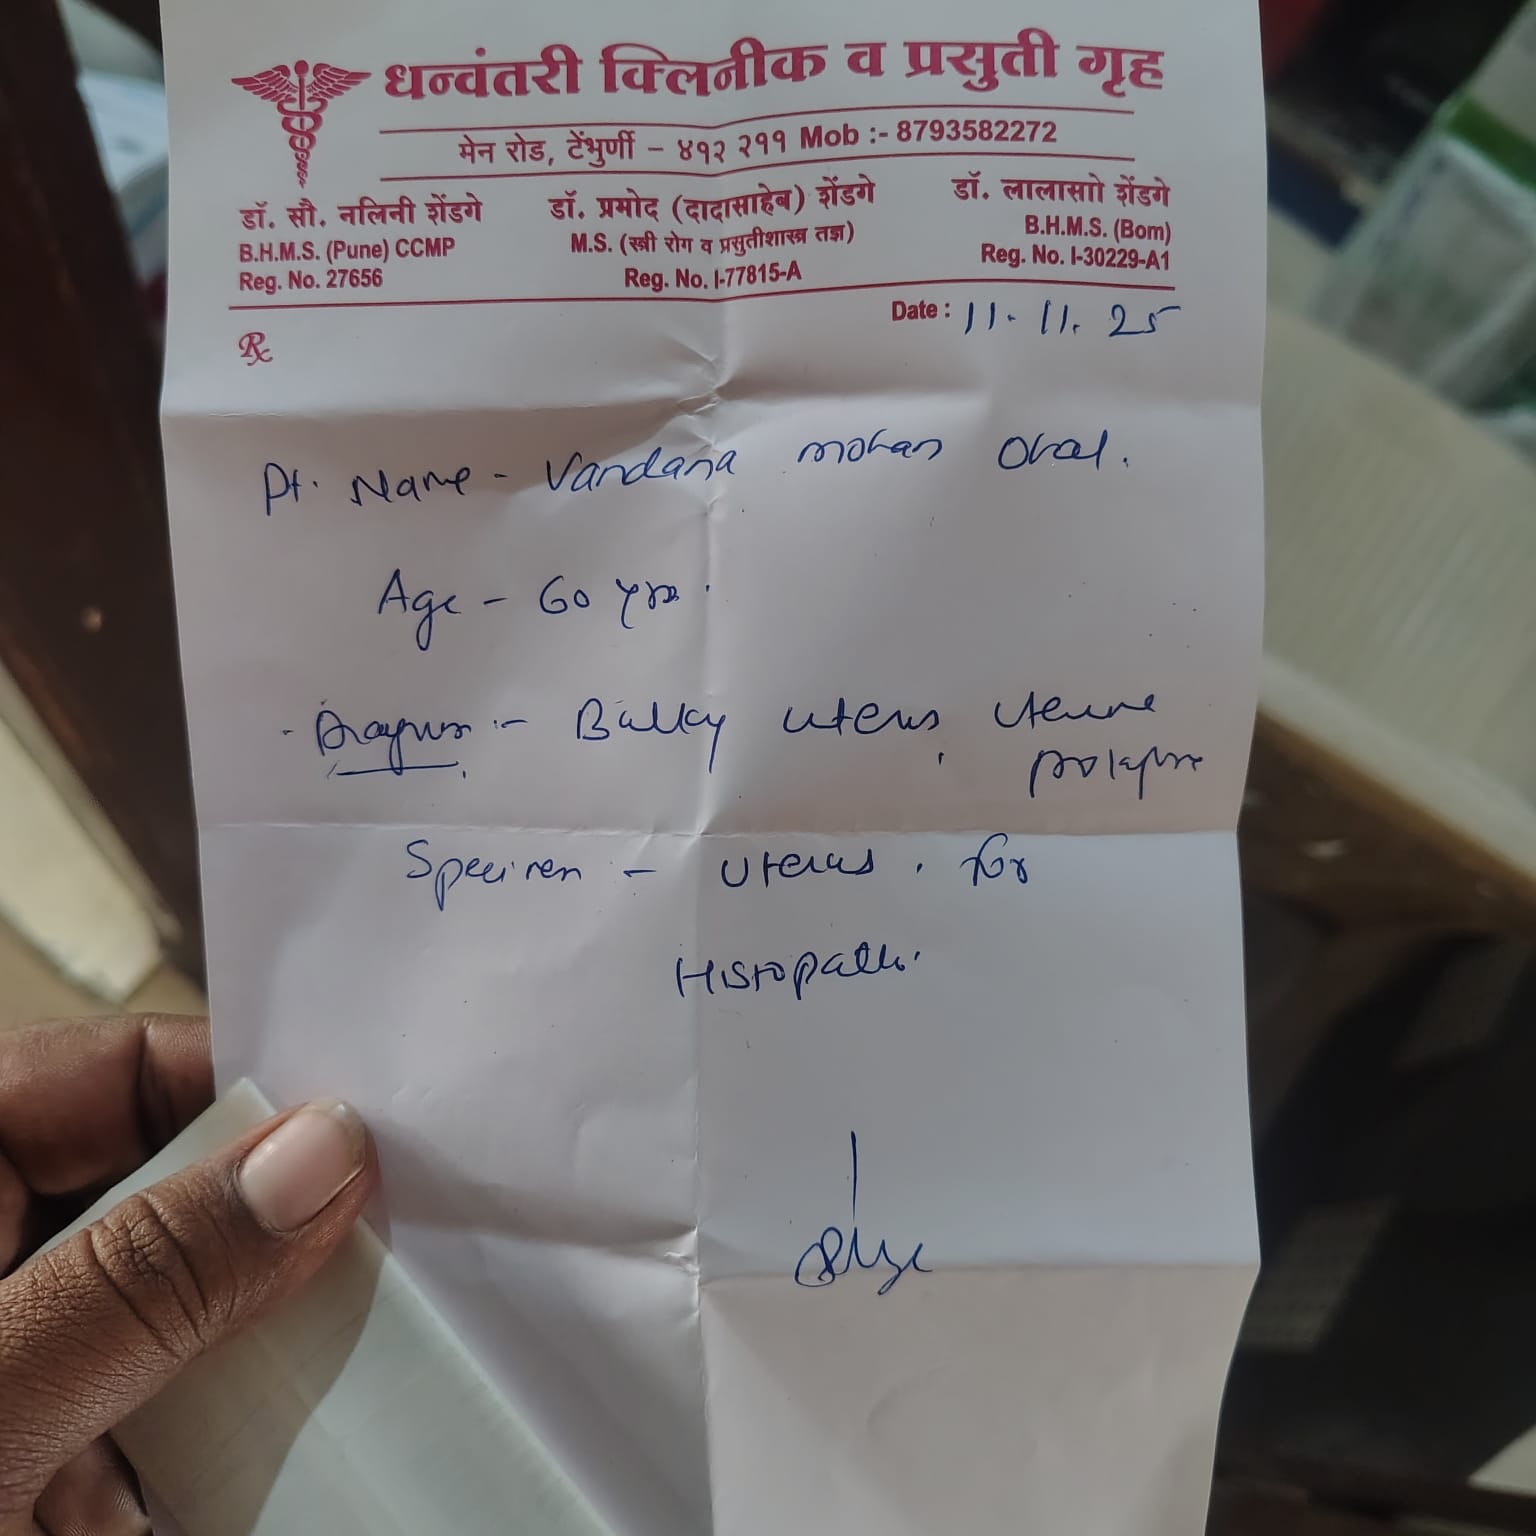 धन्वंतरी क्लिनीक व प्रसुती गृह
मेन रोड, टेंभुर्णी – ४१२ २११ Mob :- 8793582272
डॉ. सौ. नलिनी शेंडगे
B.H.M.S. (Pune) CCMP
Reg. No. 27656
डॉ. प्रमोद (दादासाहेब) शेंडगे
M.S. (स्त्री रोग व प्रसुतीशास्त्र तज्ञ)
Reg. No. I-77815-A
डॉ. लालासाो शेंडगे
B.H.M.S. (Bom)
Reg. No. I-30229-A1
Date : 11. 11. 25
Rx
Pt. Name - Vandana mohan Ohal.
Age - 60 yrs.
Bulky uterus uterine
prolapse
Specimen - uterus. for
Histopath.